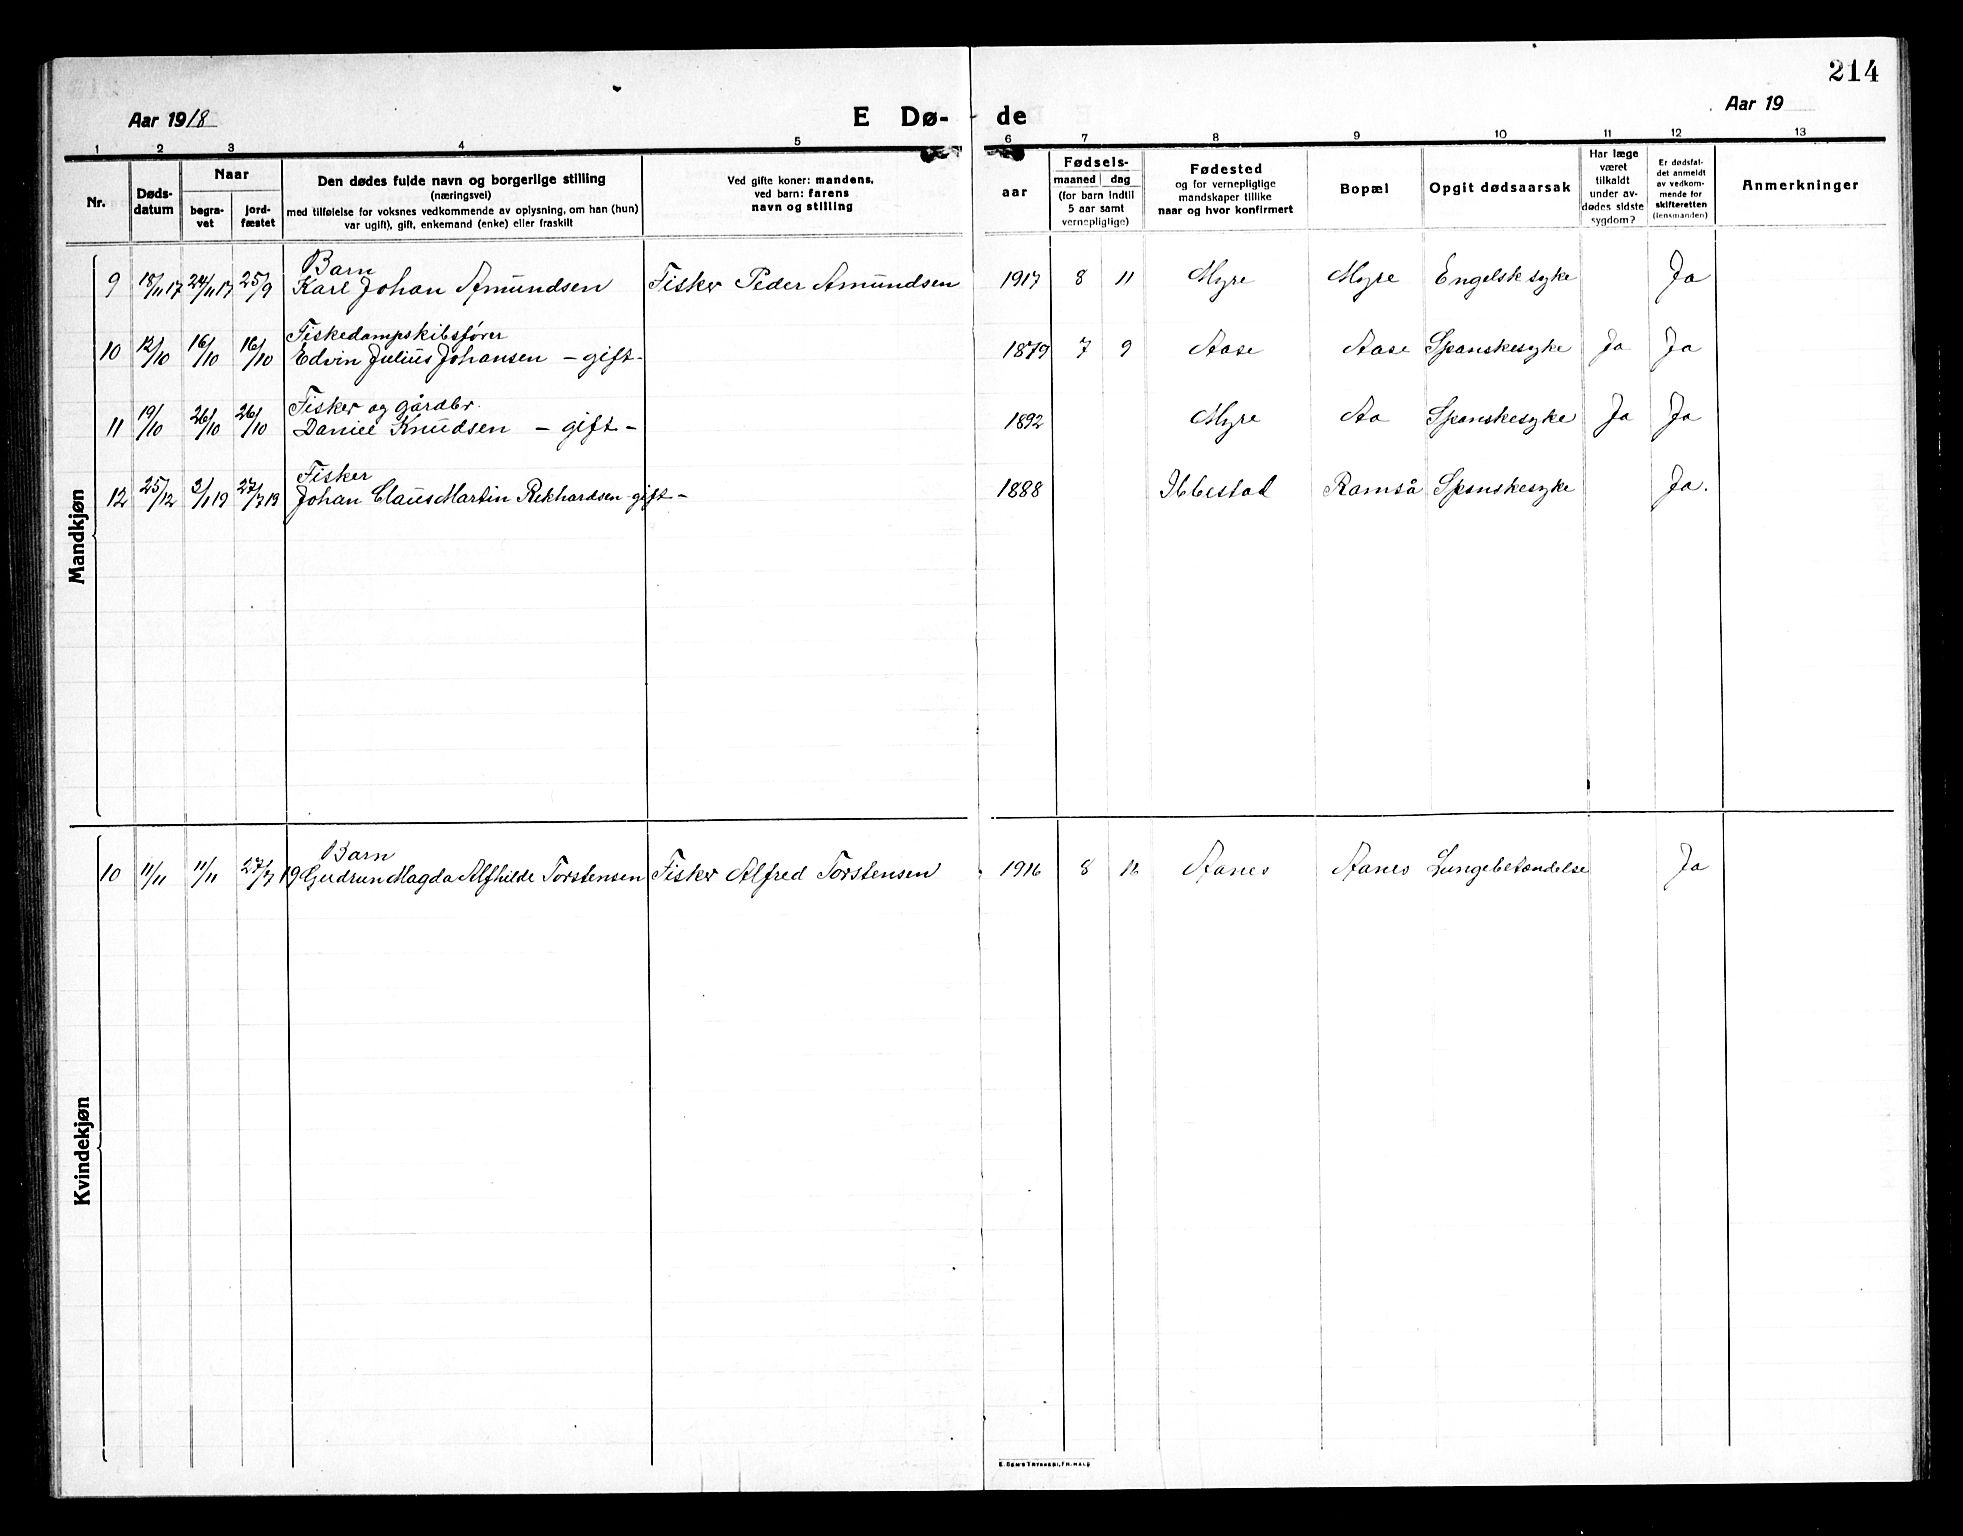 214
Aar 1918
E Dø-
de
Aar 19
1 2 3 4 5 6 7 8 9 10 11 12 13
Nr.
Døds-
datum
Naar
begra-
vet
jord-
fæstet
Den dødes fulde navn og borgerlige stilling
(næringsvei)
med tilføielse for voksnes vedkommende av oplysning, om han (hun)
var ugift), gift, enkemand (enke) eller fraskilt
Ved gifte koner: mandens,
ved barn: farens
navn og stilling
aar
Fødsels-
maaned dag
(for barn indtil
5 aar samt
vernepligtige)
Fødested
og for vernepligtige
mandskaper tillike
naar og hvor konfirmert
Bopæl
Opgit dødsaarsak
Har læge
været
tilkaldt
under av-
dødes sidste
sygdom?
Er dødsfal-
det anmeldt
av vedkom-
mende for
skifteretten
(lensmanden)
Anmerkninger
Mandkjøn
Barn
9 18/11 17 24/11 17 25/9 Karl Johan Amundsen Fisker Peder Amundsen 1917 8 11 Myre Myre Engelsk syke Ja
Fiskedampskibsfører
10 12/10 16/10 16/10 Edvin Julius Johansen - gift - 1879 7 9 Aase Aase Spanskesyke Ja Ja
Fisker og gårdbr.
11 19/10 26/10 26/10 Daniel Knudsen - gift - 1892 Myre Aa Spanskesyke Ja Ja
Fisker
12 25/12 3/1 19 27/7 19 Johan Claus Martin Rikhardsen - gift - 1888 Ibbestad Ramså Spanskesyke Ja.
Kvindekjøn
Barn
10 11/11 11/11 27/7 19 Gudrun Magda Alfhilde Torstensen Fisker Alfred Torstensen 1916 8 Aanes Aanes Lungebetændelse Ja